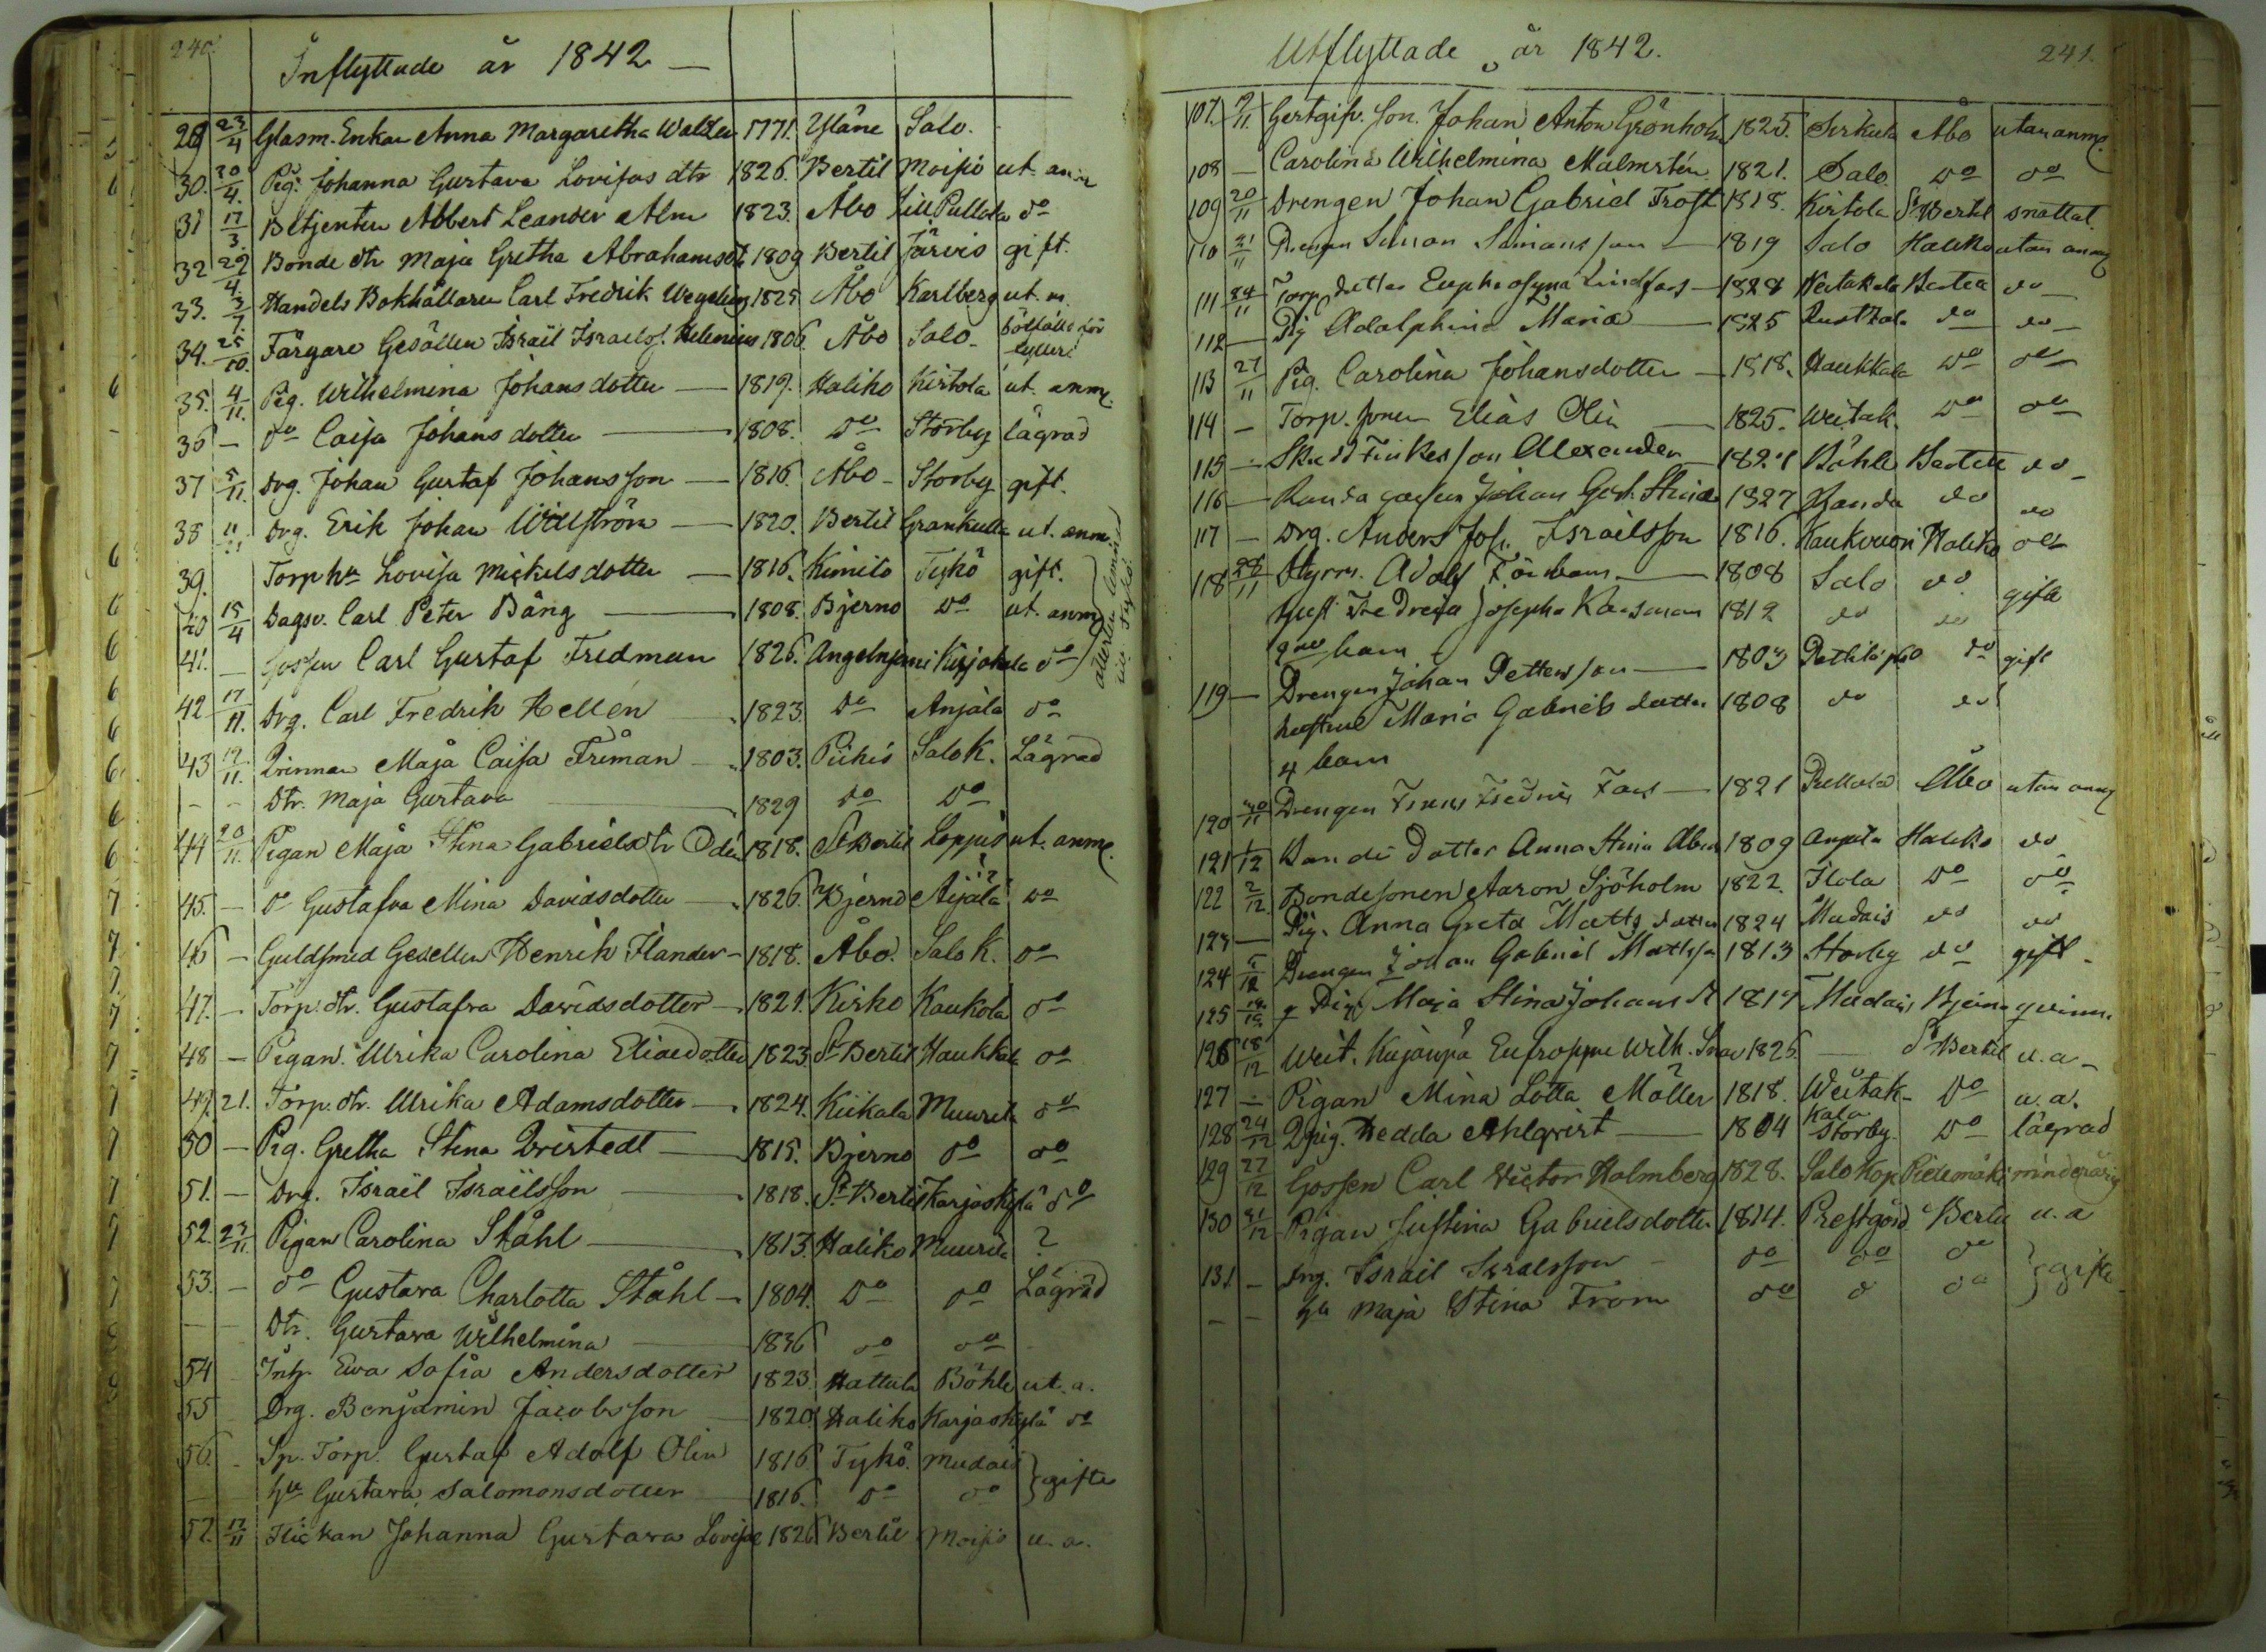 240.
Inflyttade år 1842 —
29 23/4 Glasm. Enkan Anna Margaretha 1771. Yläne Salo.
30. 20/4. Pig. Johanna Gustava Lovisas dtr 1826. Bertil Moisio ut. anm
31 17/3. Betjenten Albert Leander Alm 1823. Åbo Lill Pullola do
32 29/4. Bonde dtr Maja Gretha Abrahamsdt 1809 Bertil Järvis gift.
33. 3/7. Handels Bokhållaren Carl Fredrik Wegelius 1825 Åbo Karlberg ut. m.
34. 25/10. Färgare Gesällen Israël Israels. Helenius 1806. Åbo Salo
35. 4/11. Pig. Wilhelmina Johansdotter — 1819. Haliko Kirkola ut. anm.
36 — do Caisa Johans dotter — 1808. Do Storby lägrad
37 5/11. Drg. Johan Gustaf Johansson — 1816. Åbo Storby gift.
38 11/11 Drg. Erik Johan — 1820. Bertil Grankulla ut. anm.
39. Torp hu Lovisa Mickelsdotter — 1816. Kimito Tykö gift.
40 15/4 Dagsv. Carl Peter Bång — 1808. Bjerno Do ut. anm
41. — Gossen Carl Gustaf Fredman 1826. Angelnjemi do
42 17/11. Drg. Carl Fredrik Hellén 1823. Do Anjala do
43 19/11. Qvinnan Maja Caisa Friman — 1803. Piikis Salo K. Lägrad
- - Dtr. Maja Gustava — 1829 Do Do
44 20/11. Pigan Maja Stina Gabrielsdtr Odén 1818. St Bertil Leppis ut. anm.
45. — do Gustafva Mina Davidsdotter — 1826. Bjerno Aijälä Do
46 — Guldsmed Gesellen Henrik Ilander — 1818. Åbo. Salo K. do
47. — Torp. dtr. Gustafva Davidsdotter — 1821. Kisko Kaukola do
48 — Pigan Ulrika Carolina Eliaedotter 1823. St Bertil Haukkala do
49. 21. Torp. dtr. Ulrika Adamsdotter — 1824. Kiikala Muurila do
50 — Pig. Gretha Stina Qvistedt — 1815. Bjerno do do
51. — Drg. Israël Israëlsson — 1818. St Bertil Karjaskylä do
52. 23/11. Pigan Carolina Ståhl — 1813. Haliko Muurila ?
53. — do Gustava Charlotta Ståhl — 1804. Do do Lägrad
Dtr. Gustava Wilhelmina — 1836 do do
54 Inh. Ewa Sofia Andersdotter 1823. Hattula Böhle ut. a.
55 Drg. Benjamin Jacobsson — 1820. Haliko Karjaskylä do
56. Sp. Torp. Gustaf Adolf Olin 1816 Tykö. Mudais
hu Gustava Salomonsdotter 1816. Do do } gifte
57. 17/11 Flickan Johanna Gustava Lovisae 1826 Bertil Moisio u. a.
Utflyttade år 1842.
241.
107. 9/11. Johan Anton Grönholm 1825. Åbo utan anm.
108 — Carolina Wilhelmina Malmstén 1821. Salo. Do do
109 20/11 Drengen Johan Gabriel Frost 1818. Kirkola St Bertel snattat.
110 21/11 Drengen Simon Simonsson — 1819 Salo Haliko utan anm
111 24/11 Torp dotter Euphrosyna Lindfors — 1828 Veitakala do
112 — Pig Adolphina Maria — 1825 do do
113 27/11 Pig. Carolina Johansdotter — 1818. Haukkala Do do
114 — Torp. sonen Elias Olin — 1825. Weitak. Do do
115 — Alexander 1821 Böhle do
116 — Johan Gust. 1827 Randa do do
117 — Drg. Anders Joh. Israëlsson 1816. Kaukvuori Haliko do
118 28/11 Styrm. Adolf — 1808 Salo do gift
hust Fredrica Josepha 1812 do do
barn
119 — Drengen Johan Pettersson — 1803 do gift
hustrun Maria Gabriels dotter 1808 do do
4 barn
120 30/11 Drengen — 1821 Pullola Åbo utan anm
121 1/12 Bonde dotter Anna Stina 1809 Haliko do
122 2/12. Bondesonen Aaron Sjöholm 1822. Ilola Do do
123 — Pig. Anna Greta Matts dotter 1824 Mudais do do
124 5/12 Drengen Johan Gabriel 1813 Storby do gift
125 Maja Stina Johans dt 1817 Mudais Bjerno qvinn.
126 18/12 Weit. Wilh. 1826. — St Bertel u. a —
127 — Pigan Mina Lotta Möller 1818. Weitak- Do u. a.
kala
128 24/12 Qpig. Hedda Ahlqvist — 1804 Storby. Do lägrad
129 27/12 Gossen Carl Victor Holmberg 1828. Salo Kop minderårig
130 31/12 Pigan Justina Gabrielsdotter 1814. Prestgård Bertil u. a
131 — Drg. Israil Israelsson do do do
— — hu Maja Stina From do d do } gifte